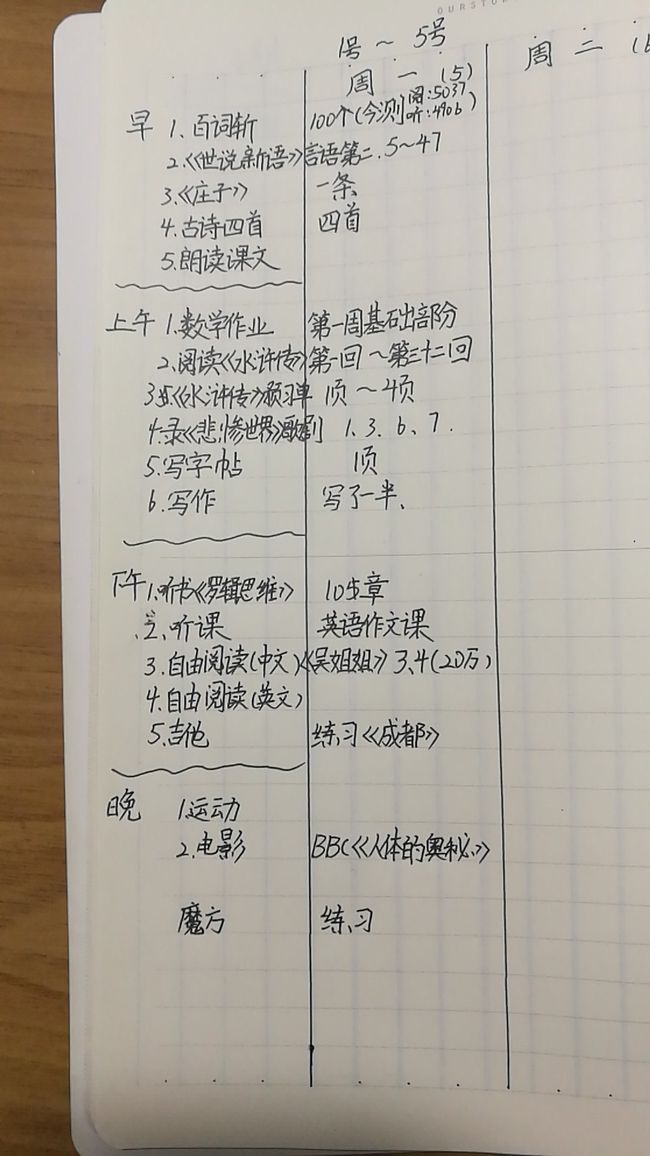 OURSTOR
1号～5号
周一(5) 周二(6
早 1、百词斩 100个(今测阅:5037 听:4906)
2.《世说新语》言语第二.5～47
3.《庄子》 一条
4.古诗四首 四首
5.朗读课文
上午 1.数学作业 第一周基础部分
2.阅读《水浒传》第一回～第三十二回
《水浒传》预习单 1页～4页
4.录《悲惨世界》歌剧 1、3、6、7.
5.写字帖 1页
6.写作 写了一半、
下午 1.听书《罗辑思维》 105章
2.听课 英语作文课
3.自由阅读(中文)《吴姐姐》3、4(20万)
4.自由阅读(英文)
5.吉他 练习《成都》
晚 1.运动
2.电影 BBC《人体的奥秘》
魔方 练习